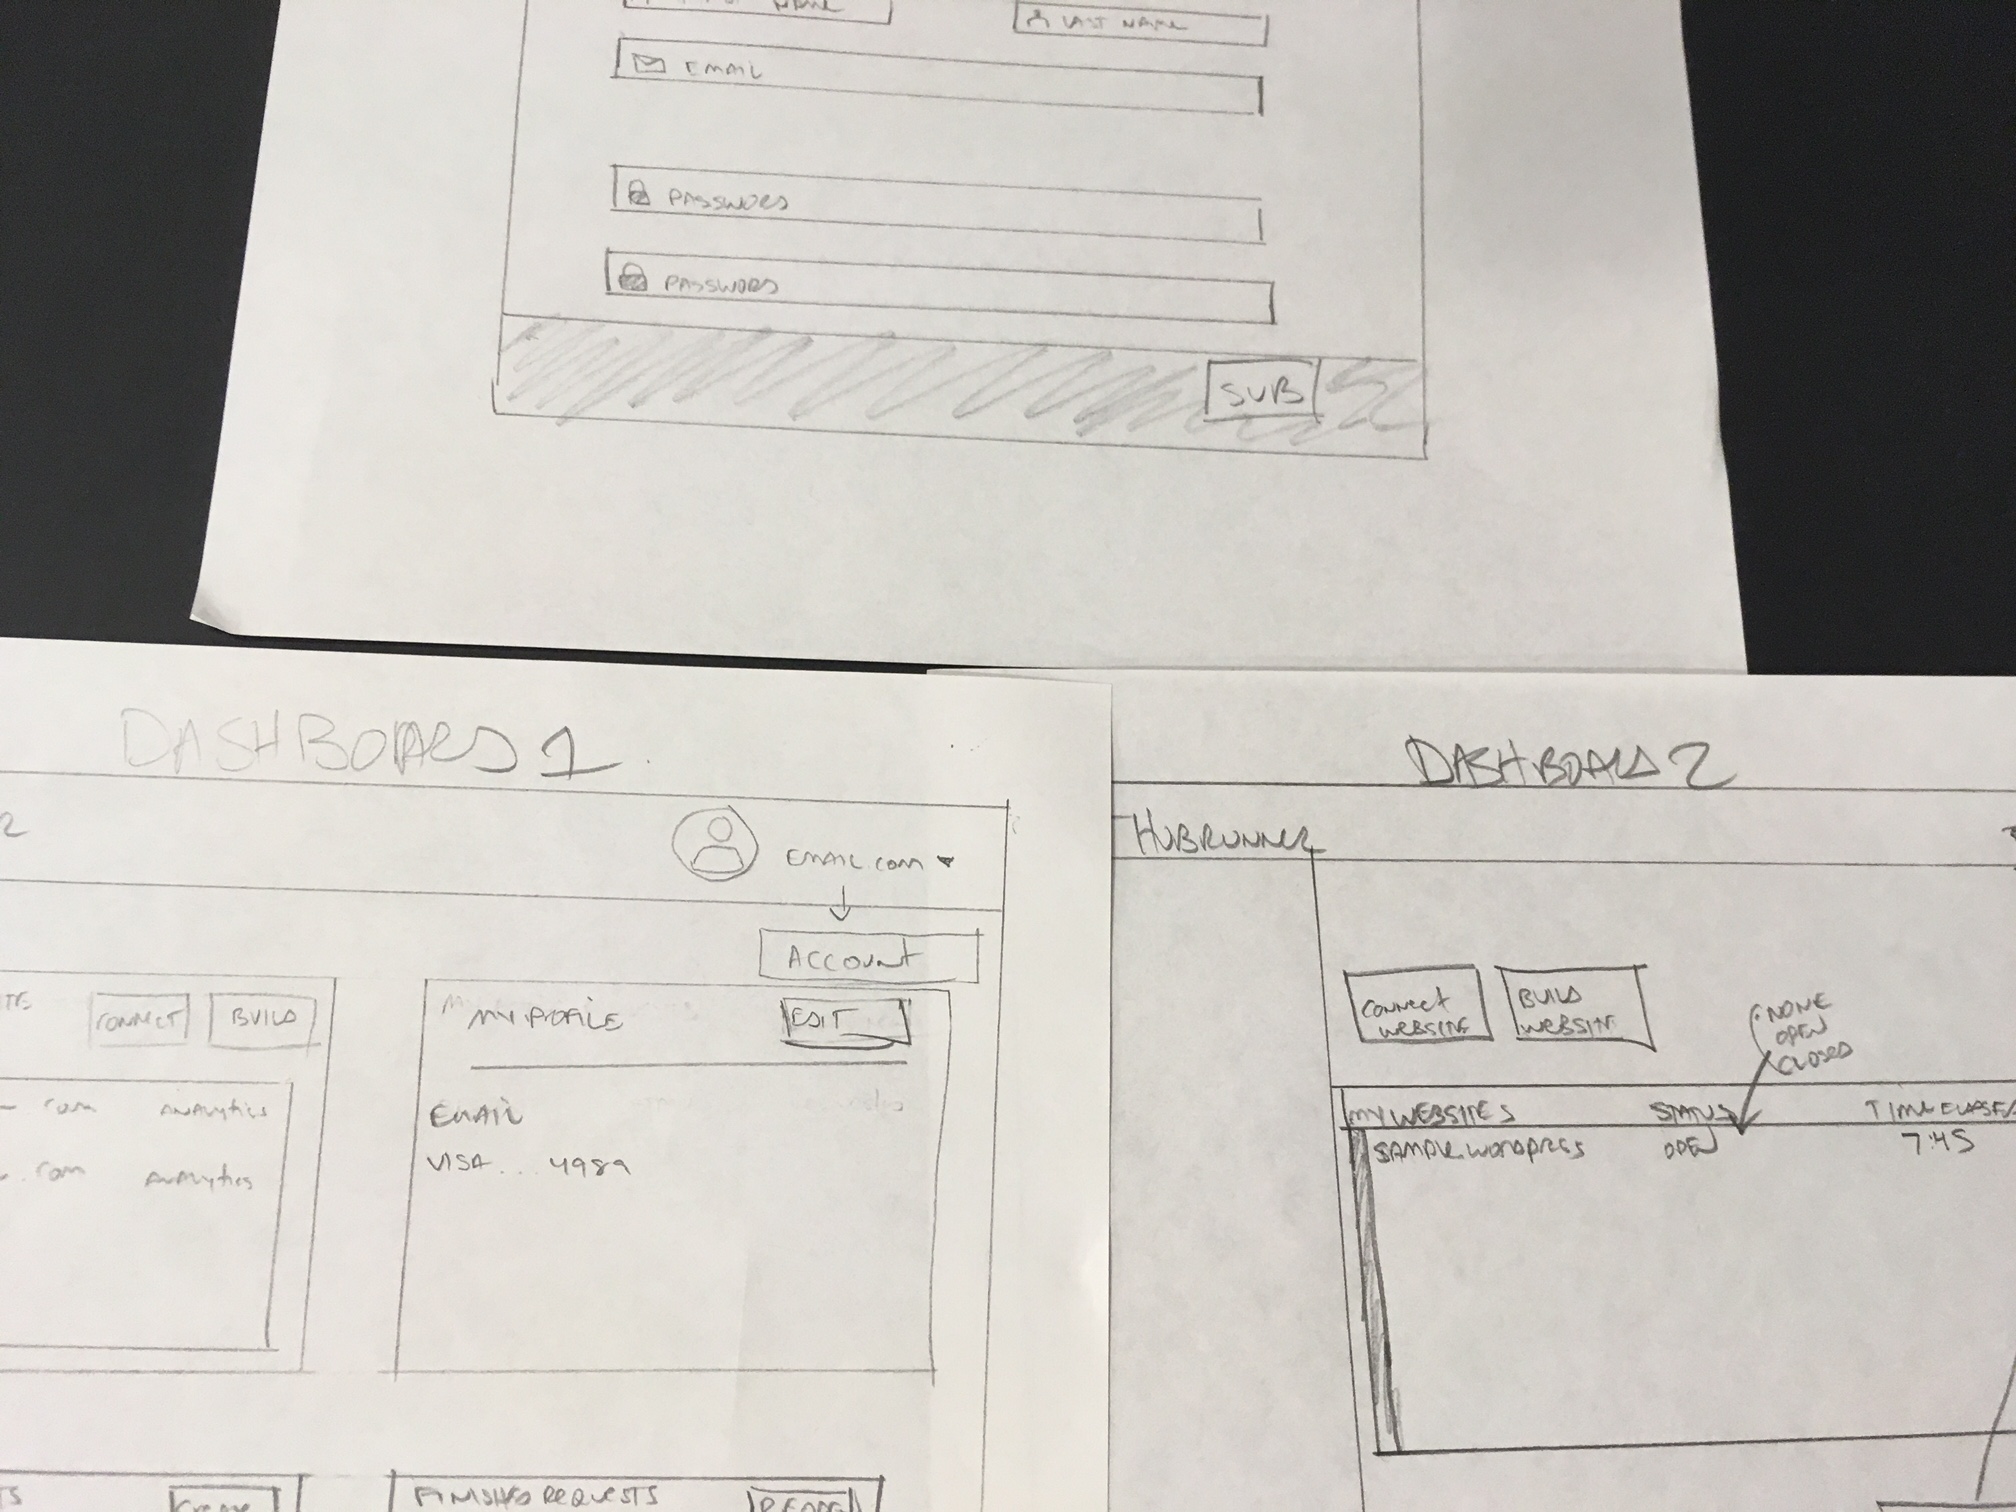 NAME
LAST NAME
EMAIL
PASSWORD
PASSWORD
SUB
DASHBOARD 1
EMAIL.COM
ACCOUNT
CONNECT BUILD
.com ANALYTICS
.com ANALYTICS
MY PROFILE EDIT
EMAIL
VISA... 4989
FINISHED REQUESTS
DASHBOARD 2
HUBRUNNER
CONNECT
WEBSITE
BUILD
WEBSITE
NONE
OPEN
CLOSED
MY WEBSITES STATUS TIME ELAPSE
SAMPLE.WORDPRESS OPEN 7:45